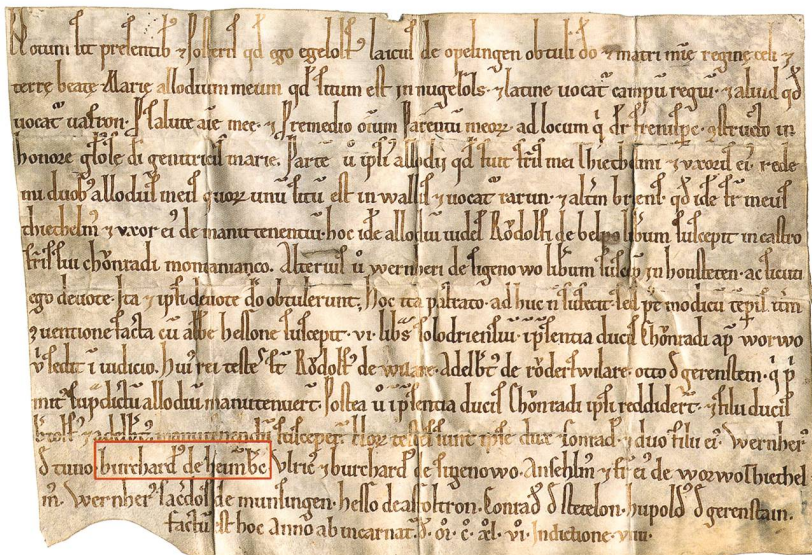 Notum sit presentib⁊ ⁊ posteris qd ego egelolf laicus de opelingen obtuli do ⁊ matri mie regine celi ⁊
terre beate Marie allodium meum qd situm est in nugerols ⁊ latine uocat campu regiu ⁊ aliud qd
uocat uafron. P salute aie mee ⁊ P remedio oium Parentu meor ad locum q dr frenispc ostructo in
honore gliose di genitricis marie. Parte u ipsi allodij qd fuit fris mei Thiethelmi ⁊ uxoris ei rede
mi duob allodiis meis quor unu situ est in wallis ⁊ uocat rarun ⁊ altm briens qd ide fr meus
thiethelm ⁊ uxor ei de manutenentiu hoc ide allodiu uidel Rodolfi de belpo libum suscepit in castro
fris sui chonradi
Alterius u wernheri de sigenowo libum suscep in honsteten ac sicuti
ego deuote Ita ⁊ ipsi deuote do obtulerunt, Hoc ita patrato ad huc n sufecit sed pt modicu tepis itm
⁊uentione facta cu abbe hessone suscepit vi libs solodriensiu i psentia ducis Chonradi ap worwo
u sedit i iudicio. Hui rei testes st Rodolf de wilare Adelbt de roderswilare otto d gerenstein q p
mit sup dictu allodiu manutenuert Postea u i psentia ducis Chonradi ipsi reddidert ⁊ filii ducis
btolf ⁊ adelbt manutenendu susceper Hor testes sunt ipse dux Conrad ⁊ duo filii ei Wernher
d tuno burchard de heimbc Vlric ⁊ burchard de sigenowo Anshelm ⁊ fr ei de worwo Thiethel
m. Wernher sacdos de munsingen hesso de assoltron. Conrad d stecelon. hupold d gerenstain.
factu st hoc Anno ab incarnat d oi c xl vi Indictione viiii